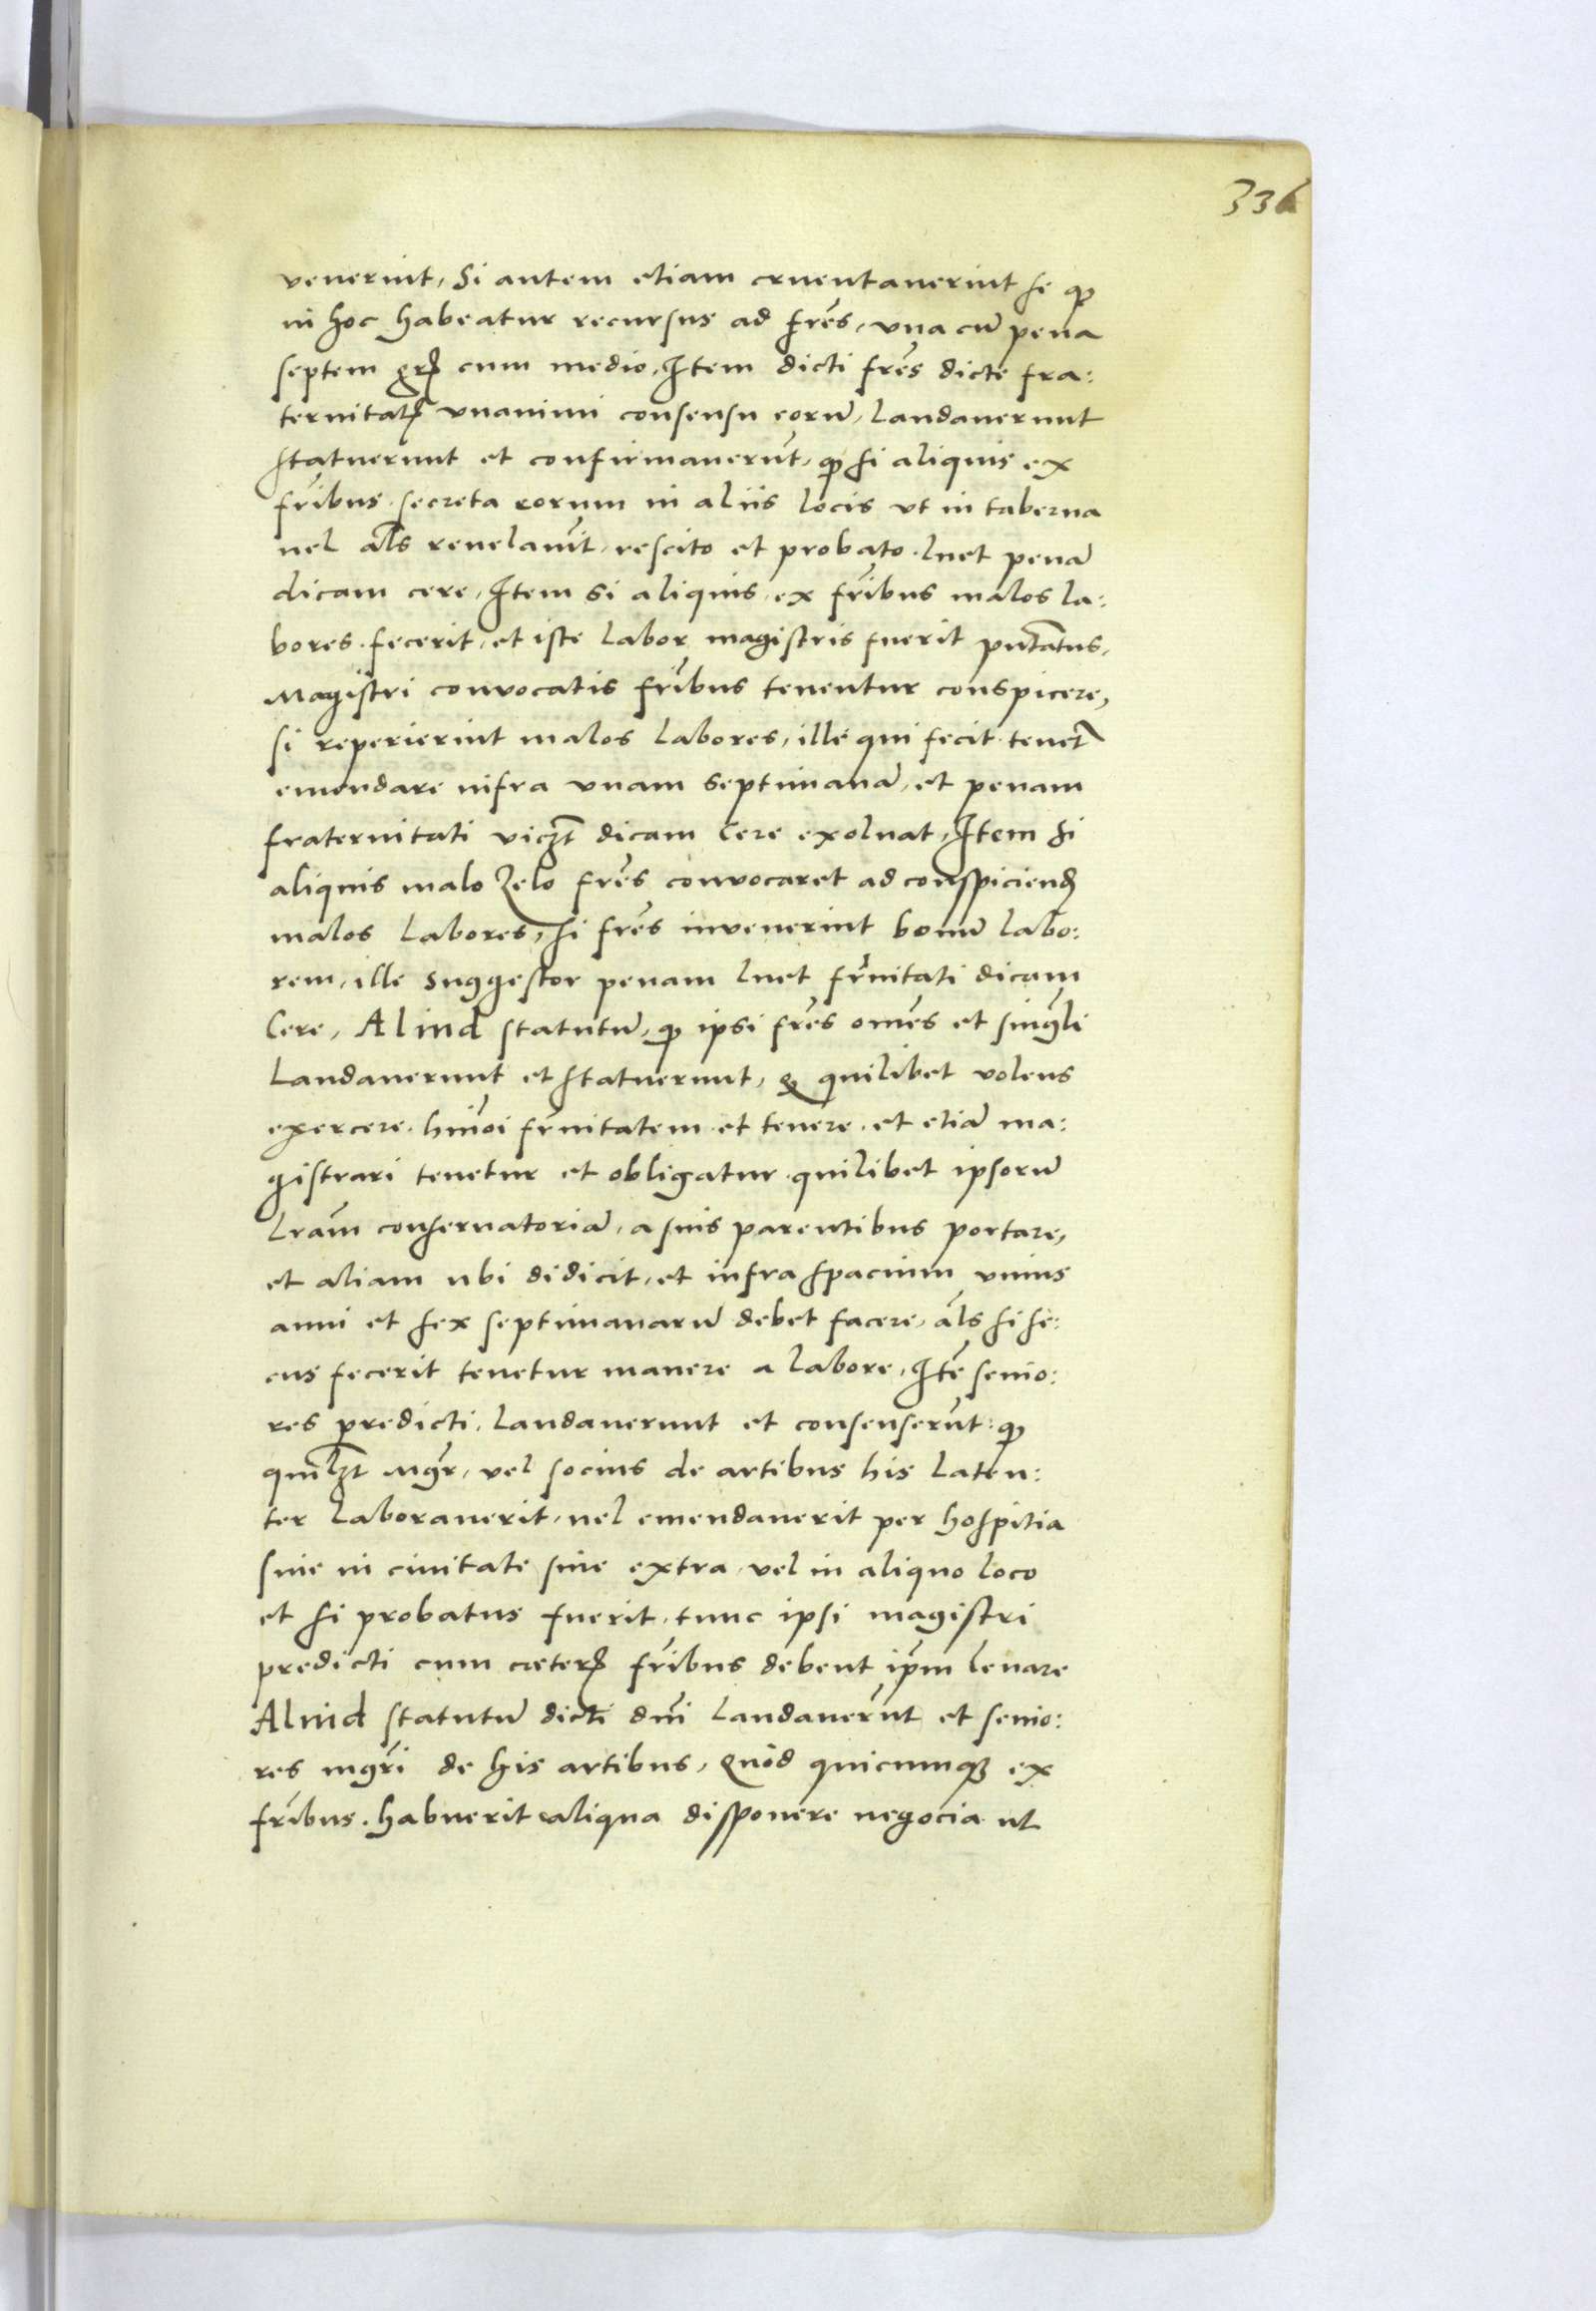 336
venerint, Si autem etiam cruentauerint se qꝫ
in hoc habeatur recursus ad frēs, vna cū pena
septem grꝭ cum medio, Item dicti frēs dicte fra:
ternitatꝭ vnanimi consensu eorū, laudauerunt
statuerunt et confirmauerūt, qꝫ si aliquis ex
frībus secreta eorum in aliis locis vt in taberna
uel al̄s reuelauīt, rescito et probato luet penā
dicam cere, Item Si aliquis ex frībus malos la:
bores fecerit, et iste labor magistris fuerit pn̄tatus,
Magistri convocatis frībus tenentur conspicere,
si reperierint malos labores, ille qui fecit tenet᷑
emendare infra vnam septimanā, et penam
fraternitati viczt dicam Cere exoluat, Item si
aliquis malo zelo frēs convocaret ad conspiciendꝭ
malos labores, si frēs invenerint bonū labo:
rem, ille suggestor penam luet fr̄nitati dicam
Cere, Aliud statutū, qꝫ ipsi frēs om̄es et singl̄i
laudauerunt et statuerunt, qꝫ quilibet volens
exercere hm̄oi fr̄nitatem et tenere et etiā ma:
gistrari tenetur et obligatur quilibet ipsorū
lr̄am conseruatoriā, a suis parentibus portare,
et aliam ubi didicit, et infra spacium vnius
anni et sex septimanarū debet facere, al̄s si se:
cus fecerit tenetur manere a labore, Itē senio:
res predicti laudauerunt et consenserūt: qꝫ
quilꝫt Mgr̄, vel socius de artibus his laten:
ter laborauerit, uel emendauerit per hospitia
siue in ciuitate siue extra, vel in aliquo loco
et si probatus fuerit, tunc ipsi magistri
predicti cum cæterꝭ frībus debent ip̄m leuare
Aliud statutū dicti dn̄i laudauerūt et senio:
res mgr̄i de his artibus, quod quicumqꝫ ex
frībus habuerit aliqua disponere negocia ut